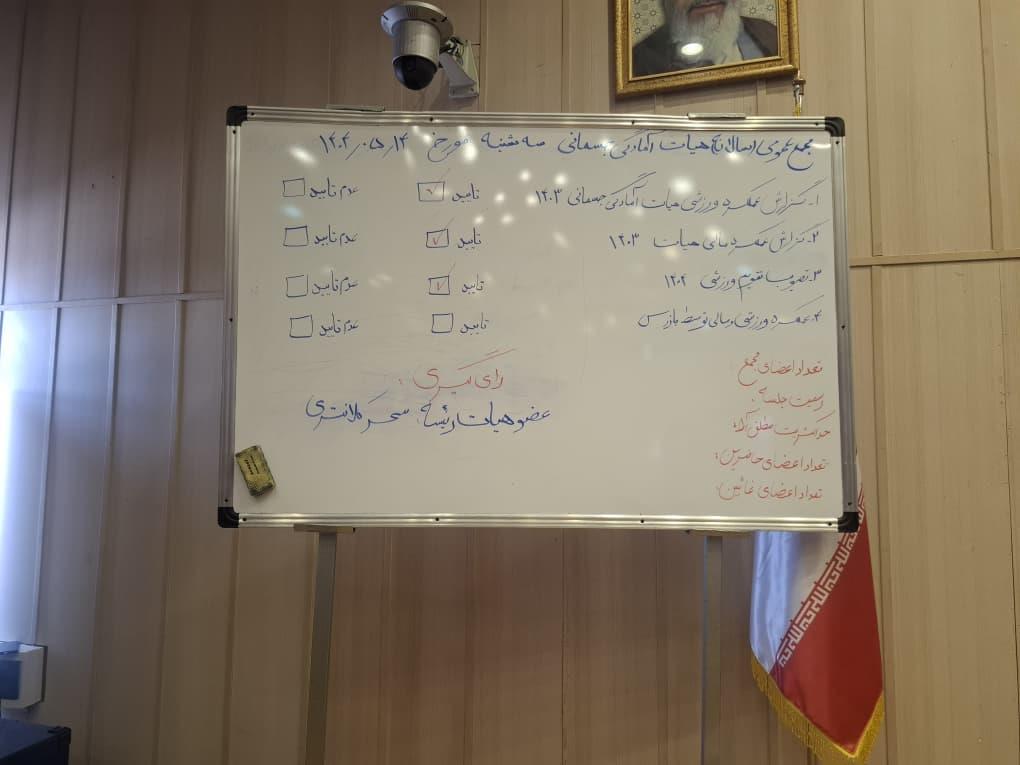 مجمع عمومی (سالانه) هیات آمادگی جسمانی سه شنبه مورخ ۱۴۰۴٫۰۵٫۱۴
۱- گزارش عملکرد ورزشی هیات آمادگی جسمانی ۱۴۰۳ تایید ☑ عدم تایید ☐
۲- گزارش عملکرد مالی هیات ۱۴۰۳ تایید ☑ عدم تایید ☐
۳- تصویب تقویم ورزشی ۱۴۰۴ تایید ☑ عدم تایید ☐
۴- عملکرد ورزشی و مالی توسط بازرس تایید ☐ عدم تایید ☐
رای گیری :
عضو هیات رئیسه : سحر کلانتری
تعداد اعضای مجمع :
رسمیت جلسه :
حداکثریت مطلق آراء :
تعداد اعضای حاضرین :
تعداد اعضای غائبین :